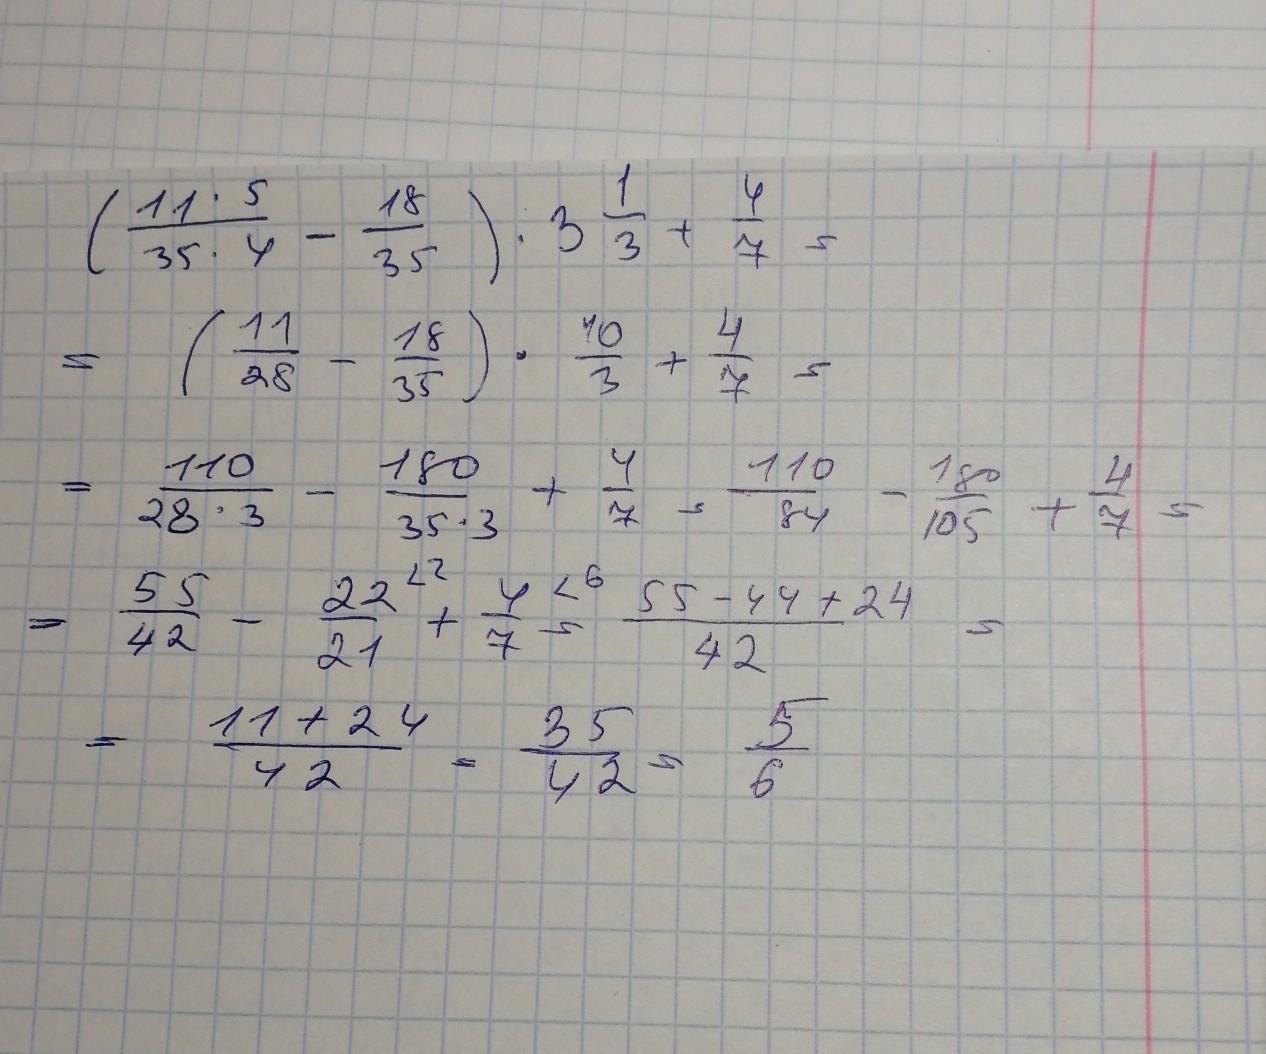 (11·5/35·4 - 18/35) · 3 1/3 + 4/7 =
= (11/28 - 18/35) · 10/3 + 4/7 =
= 110/28·3 - 180/35·3 + 4/7 = 110/84 - 180/105 + 4/7 =
= 55/42 - 22/21 ∠2 + 4/7 ∠6 = 55-44+24/42 =
= 11+24/42 = 35/42 = 5/6